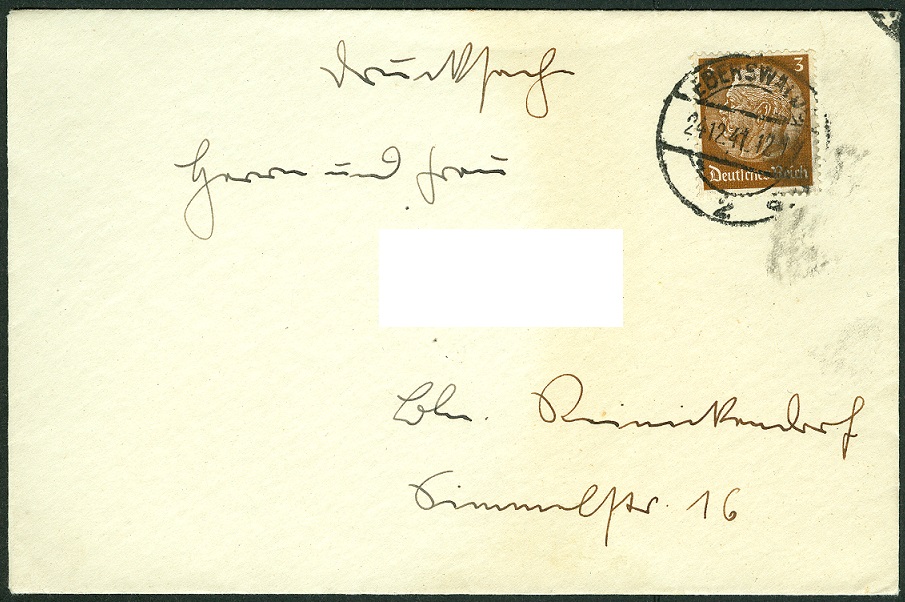 Drucksache
3
EBERSWALDE
24.12.41.12
Deutsches Reich
2 a
Herrn und Frau
Bln. Reinickendorf
Simmelstr. 16